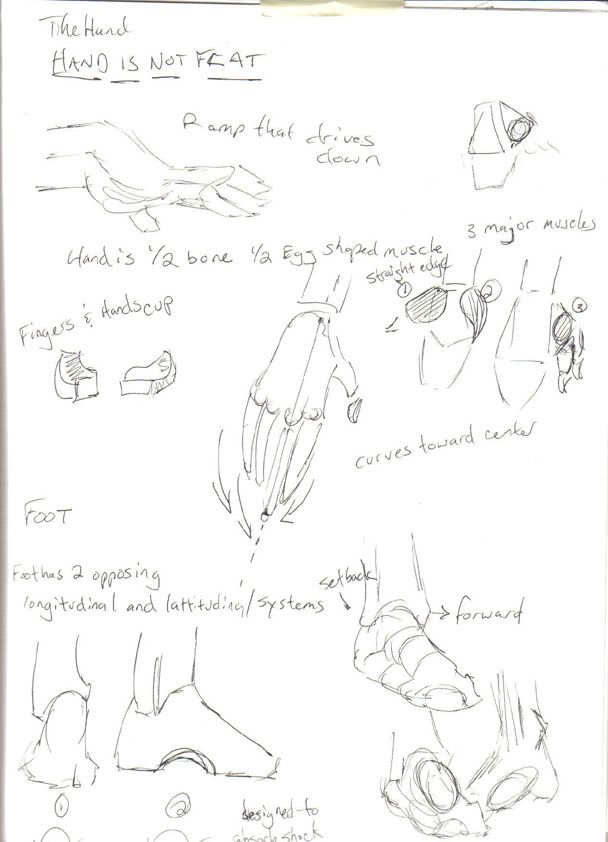 The Hand
HAND IS NOT FLAT
Ramp that drives
down
3 major muscles
Hand is 1/2 bone 1/2 Egg shaped muscle
straight edge
1
2
3
Fingers & Hands cup
curves toward center
FOOT
Foot has 2 opposing
longitudinal and lattitudinal systems
setback
forward
1
2
designed to
absorb shock